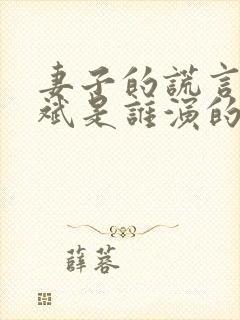 妻子的謊言
斌是誰演的
薛蓉